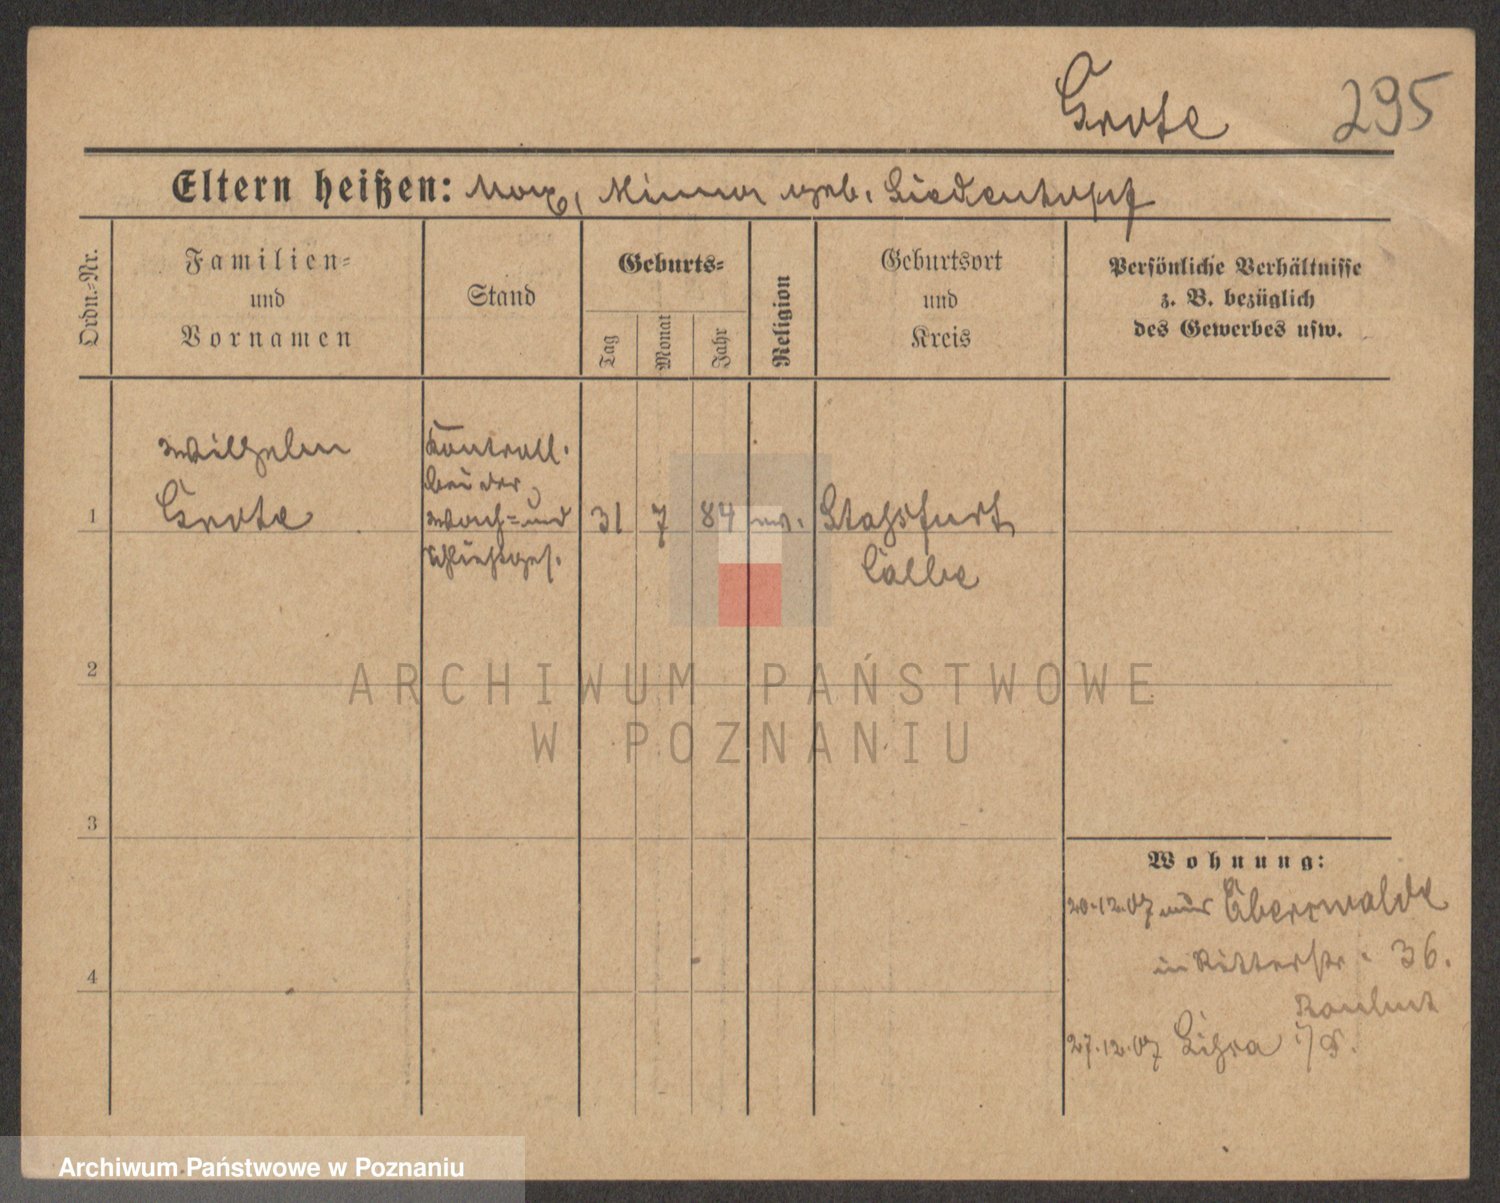 Grote 295
Eltern heißen: Max, Minna geb. Siedentopf
Ordn.-Nr.
Familien-
und
Vornamen
Stand
Geburts-
Tag
Monat
Jahr
Religion
Geburtsort
und
Kreis
Persönliche Verhältnisse
z. B. bezüglich
des Gewerbes usw.
Wilhelm
Grote
Kontroll.
bei der
Wach- und
Schließges.
1
31
7
84
ev.
Staßfurt
Calbe
2
3
4
Wohnung:
20.12.07 aus Eberswalde
in Ritterstr. 36.
27.12.07
ARCHIWUM PAŃSTWOWE
W POZNANIU
Archiwum Państwowe w Poznaniu